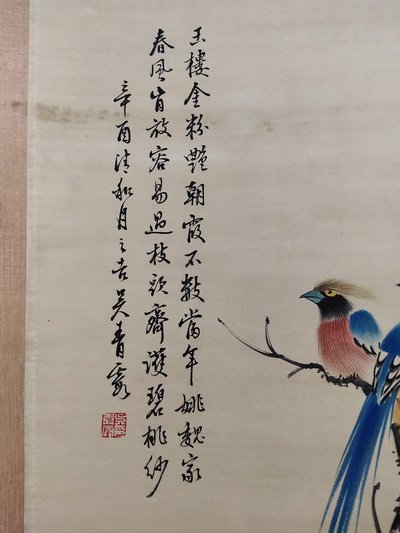 玉樓金粉艷朝霞不數當年姚魏家
春風肯放容易過枝頭齊護碧桃紗
辛酉清和月之吉吴青霞